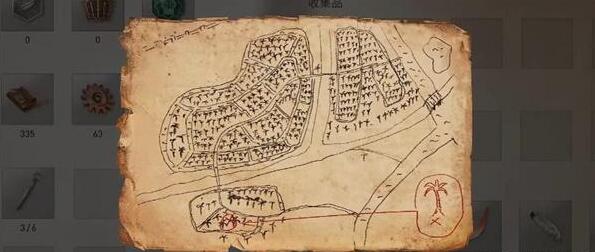 收集品
0
0
335
63
3/6